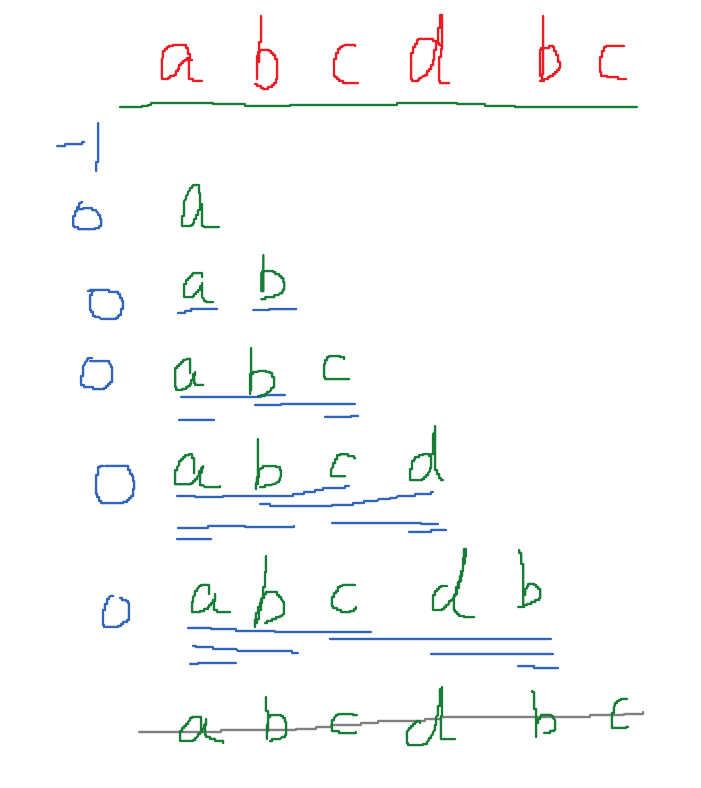 a b c d b c
-1
0 a
0 a b
0 a b c
0 a b c d
0 a b c d b
a b c d b c